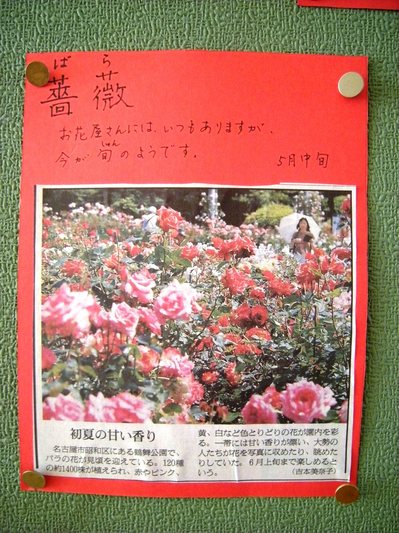 ばら
薔薇
お花屋さんには、いつもありますが、
しゅん
今が旬のようです。
5月中旬
初夏の甘い香り
名古屋市昭和区にある鶴舞公園で、
バラの花が見頃を迎えている。120種
の約1400株が植えられ、赤やピンク、
黄、白など色とりどりの花が園内を彩
る。一帯には甘い香りが漂い、大勢の
人たちが花を写真に収めたり、眺めた
りしていた。6月上旬まで楽しめると
いう。(吉本美奈子)